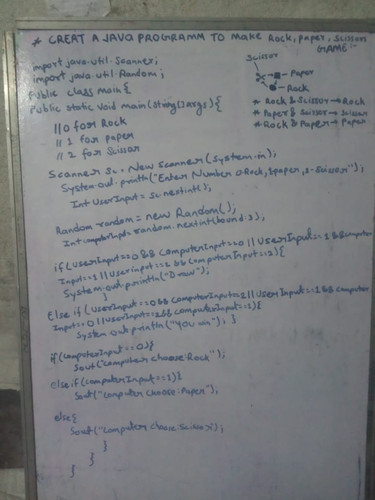 * CREAT A JAVA PROGRAMM TO MAKE Rock, paper, scissors
GAME:-
Scissor
Paper
Rock
* Rock & Scissor → Rock
* Paper & Scissor → Scissor
* Rock & Paper → Paper
import java.util.Scanner;
import java.util.Random;
Public class main{
Public static void main(string[]args){
//0 for Rock
// 1 for paper
// 2 for Scissor
Scanner Sc = New Scanner(System.in);
System.out.println("Enter Number 0-Rock, 1-paper, 2-Scissor");
Int UserInput = Sc.nextint();
Random random = new Random();
Int computerInput = random.nextint(bound:3);
if(userInput==0 && computerInput==0 || UserInput==1 && computer
Input==1 || Userinput==2 && computerInput==2){
System.out.println("Draw");
}
Else if (userInput==0 && computerInput==2 || UserInput==1 && computer
Input==0 || userInput==2 && computerInput==1){
System.out.println("You win"); }
if(computerInput==0){
Sout("computer choose:Rock");
else if(computerInput==1){
Sout("computer choose:Paper");
else{
Sout("computer choose Scissor);
}
}
}